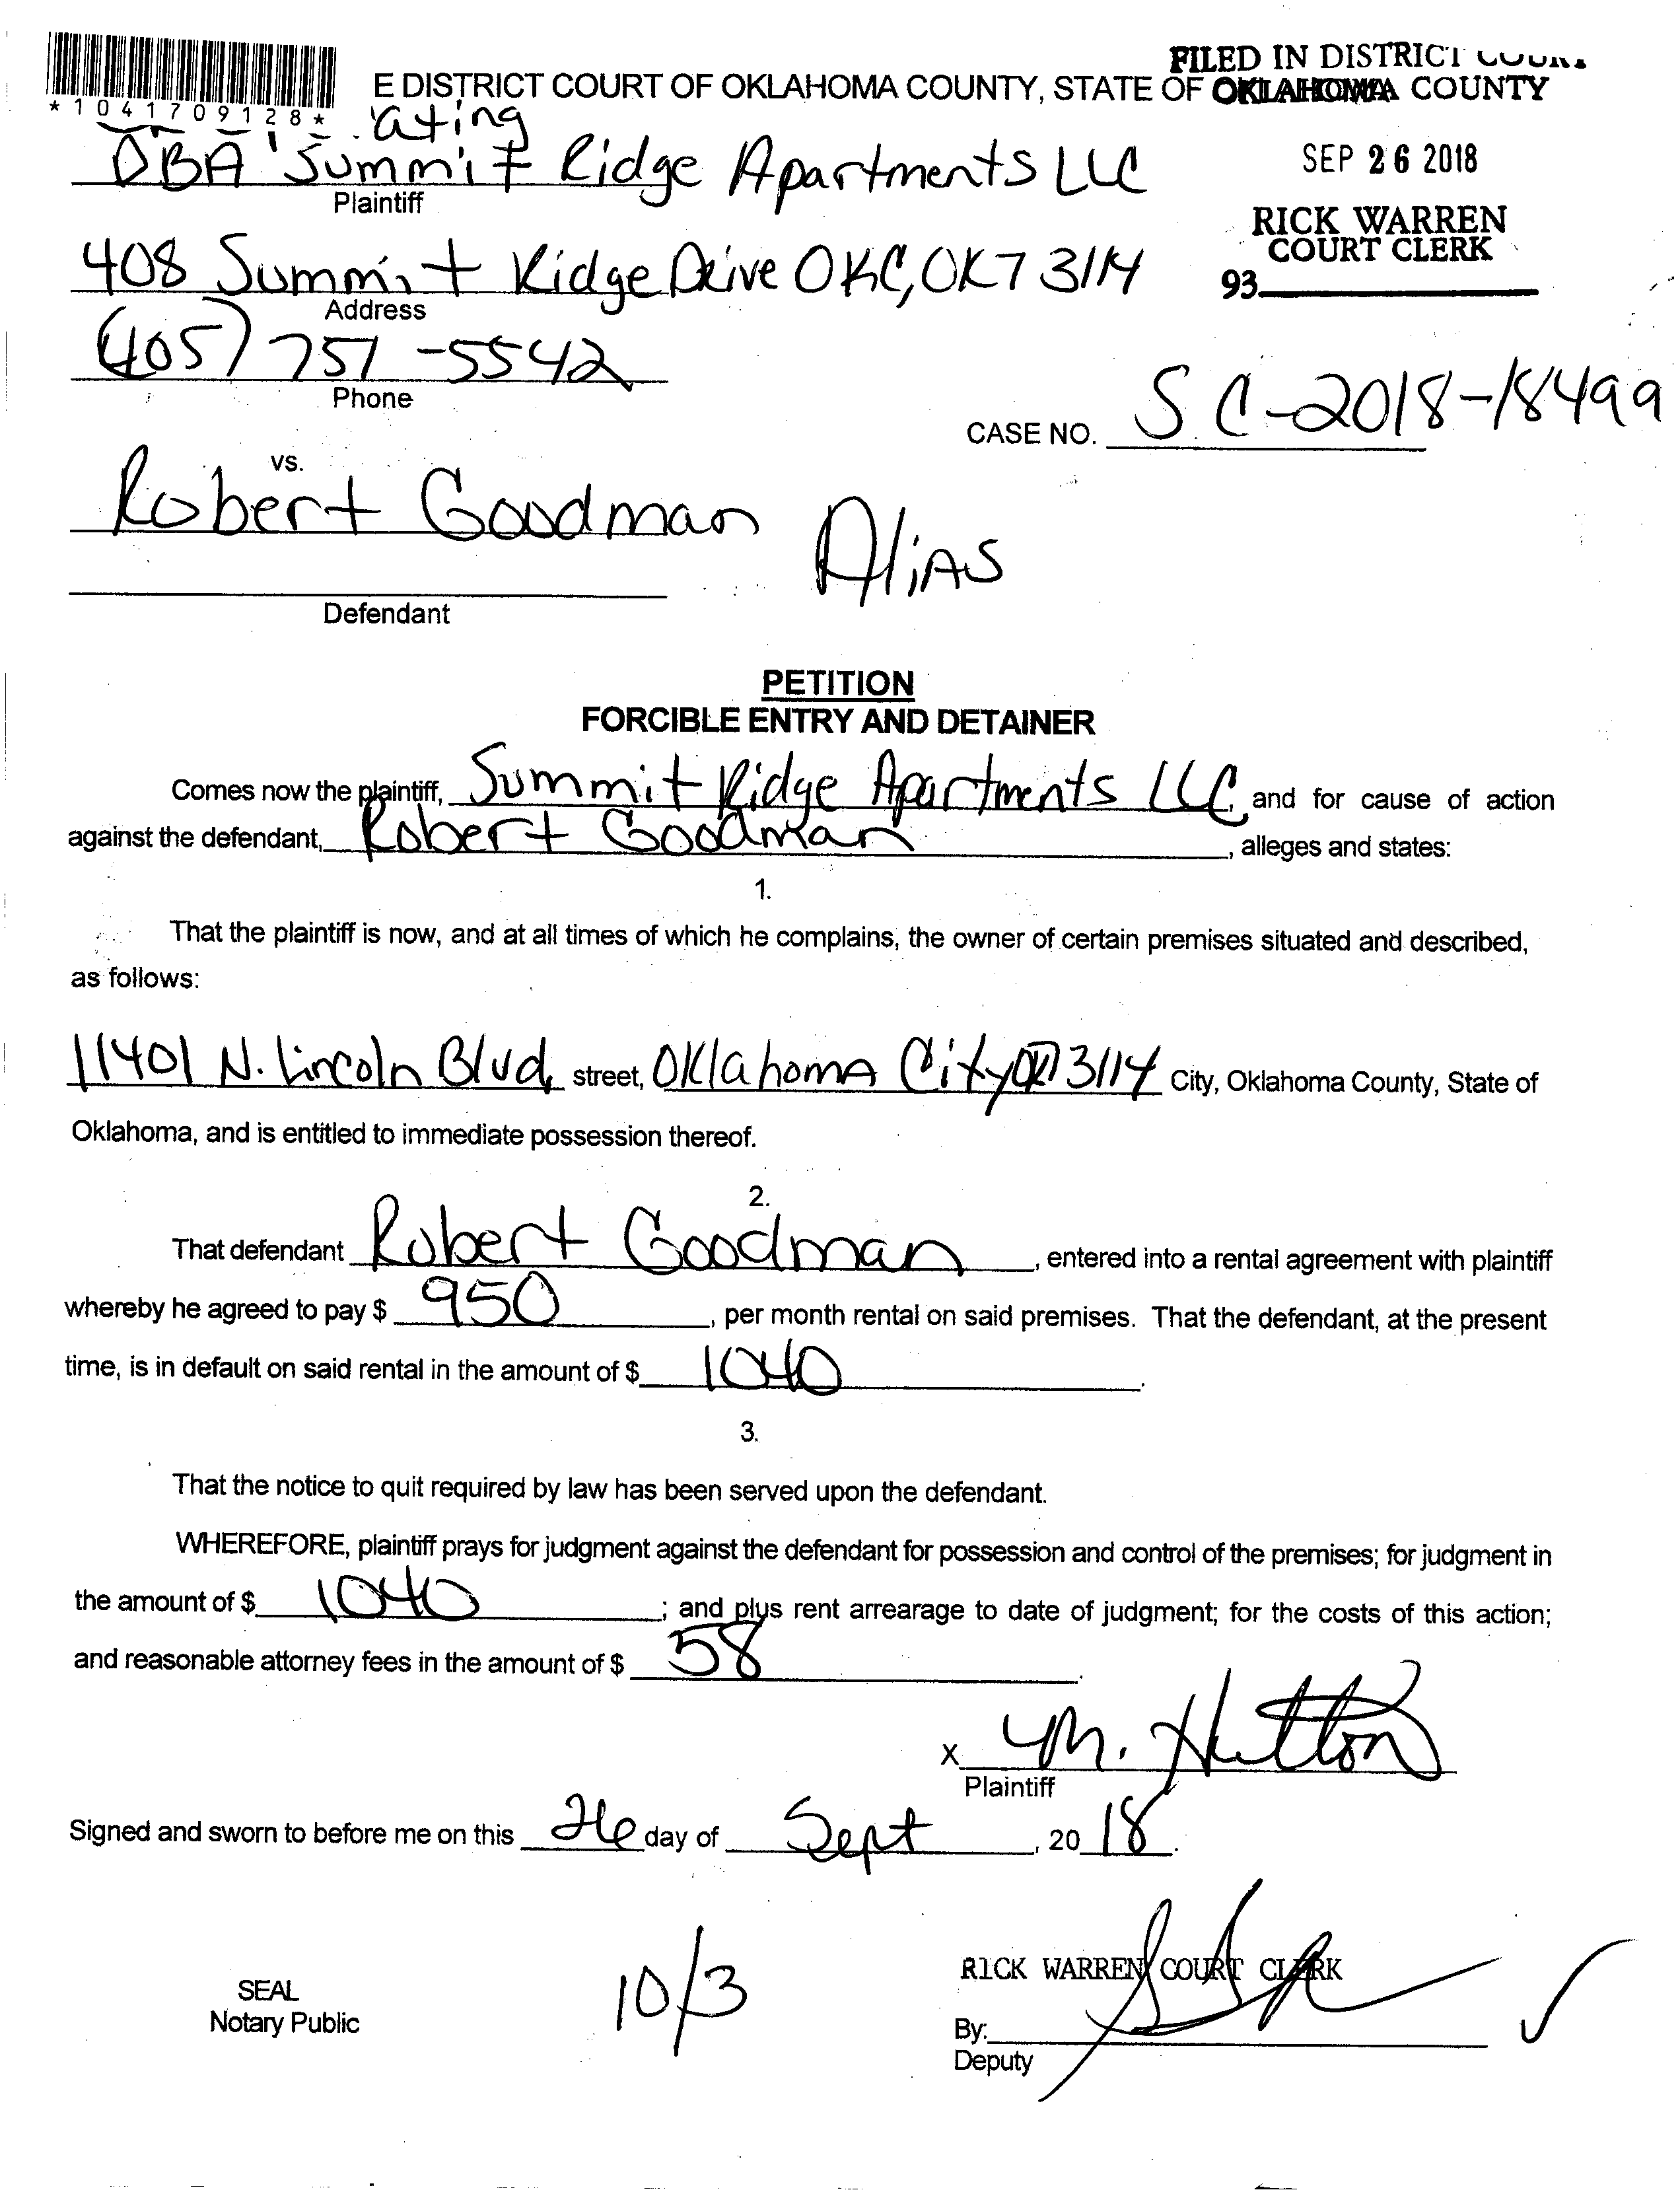 FILED IN DISTRICT COURT
E DISTRICT COURT OF OKLAHOMA COUNTY, STATE OF OKLAHOMA COUNTY
*1041709128*
ating
DBA Summit Ridge Apartments LLC
SEP 26 2018
Plaintiff
RICK WARREN
COURT CLERK
408 Summit Ridge Drive OKC, OK 73114
93
Address
(405) 751-5542
Phone
CASE NO. SC-2018-18499
vs.
Robert Goodman
Alias
Defendant
PETITION
FORCIBLE ENTRY AND DETAINER
Comes now the plaintiff, Summit Ridge Apartments LLC, and for cause of action
against the defendant, Robert Goodman, alleges and states:
1.
That the plaintiff is now, and at all times of which he complains, the owner of certain premises situated and described,
as follows:
11401 N. Lincoln Blvd, street, Oklahoma City OK 73114 City, Oklahoma County, State of
Oklahoma, and is entitled to immediate possession thereof.
2.
That defendant Robert Goodman, entered into a rental agreement with plaintiff
whereby he agreed to pay $ 950, per month rental on said premises. That the defendant, at the present
time, is in default on said rental in the amount of $ 1040.
3.
That the notice to quit required by law has been served upon the defendant.
WHEREFORE, plaintiff prays for judgment against the defendant for possession and control of the premises; for judgment in
the amount of $ 1040; and plus rent arrearage to date of judgment; for the costs of this action;
and reasonable attorney fees in the amount of $ 58.
x M. Hutton
Plaintiff
Signed and sworn to before me on this 26 day of Sept, 2018.
RICK WARREN COURT CLERK
SEAL
Notary Public
10/3
By:
Deputy